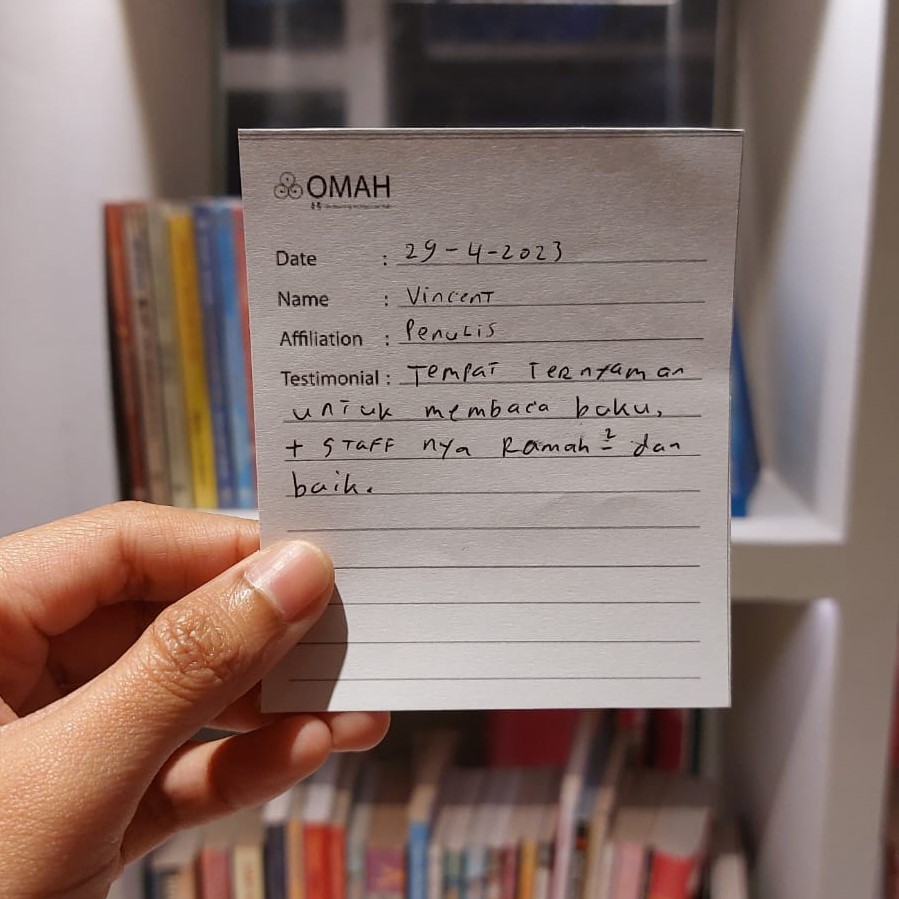 OMAH
Date : 29-4-2023
Name : Vincent
Affiliation : Penulis
Testimonial : Tempat Ternyaman
untuk membaca buku,
+ Staff nya Ramah² dan
baik.